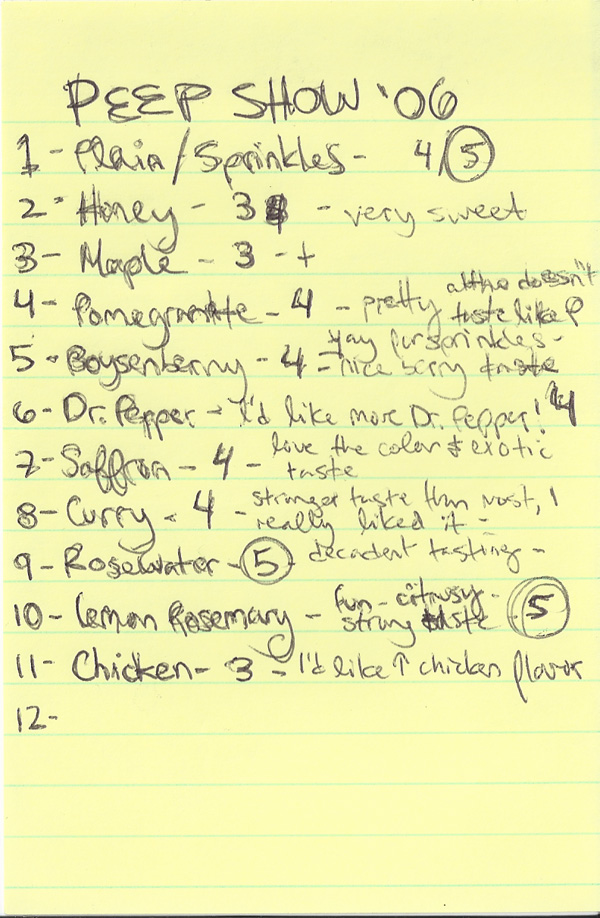 PEEP SHOW '06
1- Plain/Sprinkles- 4/5
2- Honey - 3 - very sweet
3- Maple - 3 - +
4- Pomegranate - 4 - pretty altho doesn't taste like P
5- Boysenberry - 4 - yay for sprinkles - nice berry taste
6- Dr. Pepper - I'd like more Dr. Pepper! 4
7- Saffron - 4 - love the color & exotic taste
8- Curry - 4 - stronger taste than most, I really liked it -
9- Rosewater - 5 decadent tasting -
10- Lemon Rosemary - fun - citrusy - strong taste 5
11- Chicken - 3 - I'd like ↑ chicken flavor
12-